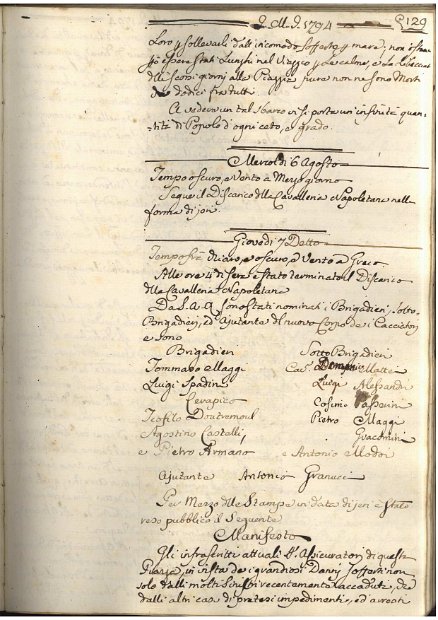 A. M. D. 1794 129
Loro p sollevarli dall'incomodo sofferto p mare; non
essere stati Lunghi nel Viaggo p Le calme, e La
delli scorsi giorni alla Piaggia fiura non ne sono Morti
che dodici fra tutti.
A vedere un tal sbarco vi si portò un'infinità quan-
tità di Popolo d'ogni ceto, e grado.
Mercoldì 6 Agosto
Tempo oscuro, e Vento a Mezzogiorno
Segue il Discarico della Cavalleria Napoletana nella
forma di jeri.
Giovedì 7 Detto
Tempo frà chiaro, e oscuro, e Vento a Greco
Alle ore 4 di sera è stato terminato il Discarico
della Cavalleria Napoletana
Da S. A. R. sono stati nominati i Brigadieri, Sotto
Brigadieri, ed Ajutante del nuovo Corpo de i Cacciatori,
e sono
Brigadieri Sotto Brigadieri
Tommaso Maggi Cav. Matte
Luigi Spadini Luigi Alessandri
Levapito Cosimo Passerini
Teofilo Doutremoul Pietro Maggi
Agostino Castelli, Giacomini
e Pietro Armano e Antonio Modon
Ajutante Antonio Granucci
Per Mezzo delle Stampe in data di jeri è stato
reso pubblico il Seguente
Manifesto
Gli infrascritti attuali Assicuratori di questa
Piazza, in vista dei grandiosi Danni sofferti non
solo dalli molti Sinistri recentemente accaduti, che
dalli altri casi di pretesi impedimenti, ed avarosti